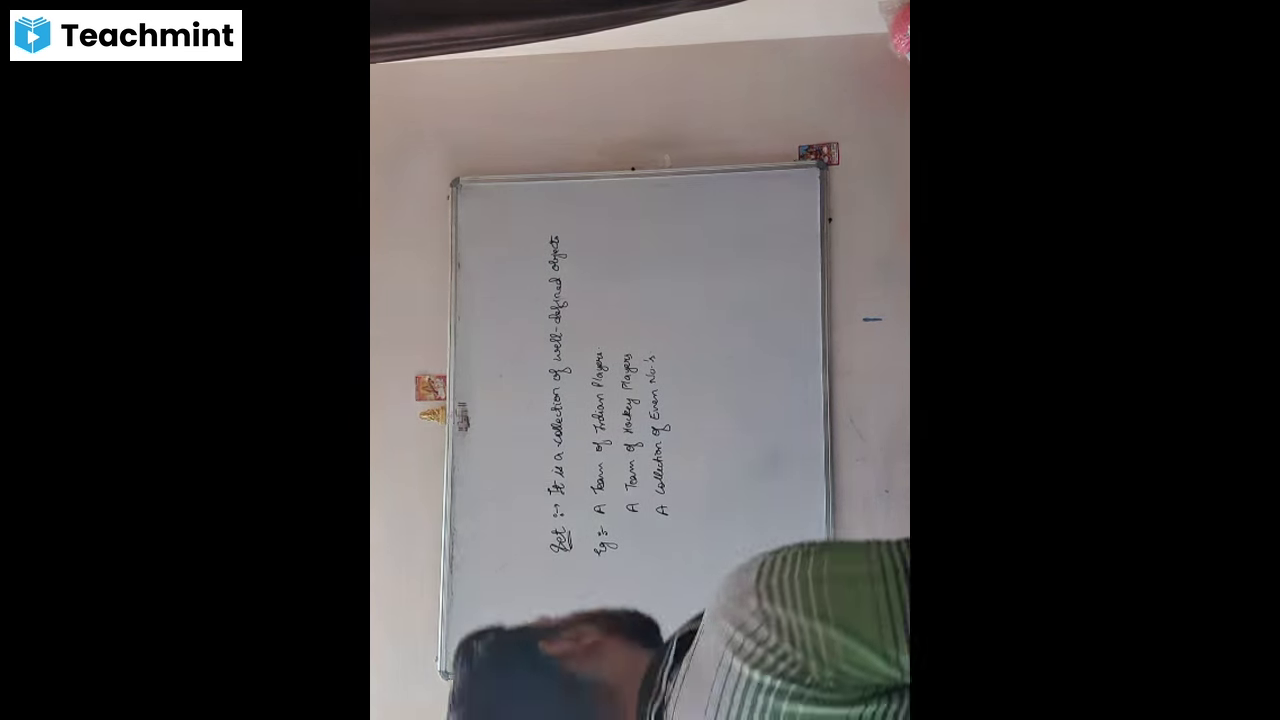 Teachmint
Set :→ It is a collection of well-defined objects
Eg :- A Team of Indian Players.
A Team of Hockey Players
A Collection of Even No.'s